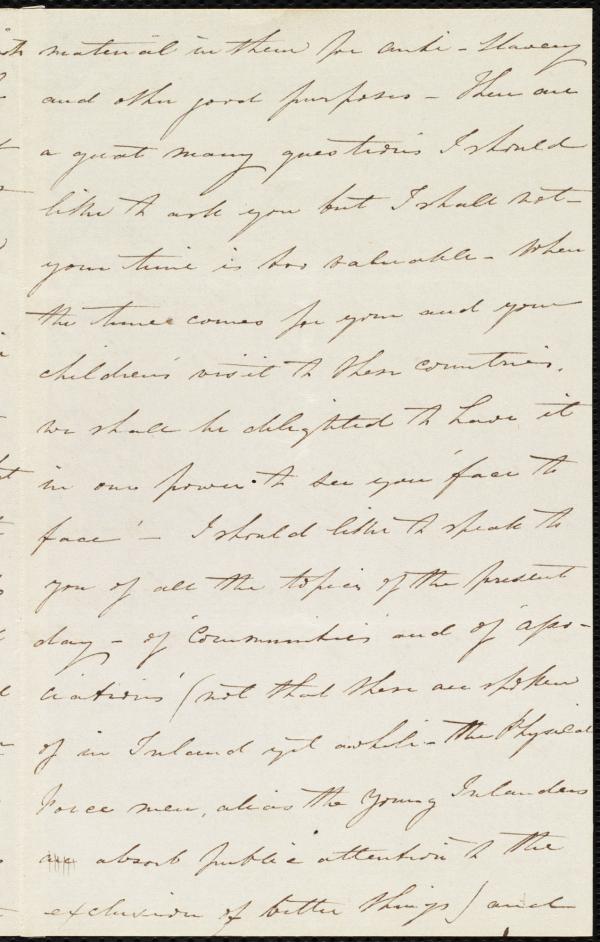 material in them for anti-slavery
and other good purposes - There are
a great many questions I should
like to ask you but I shall not -
your time is too valuable - When
the time comes for your and your
children's visit to these countries,
we shall be delighted to have it
in our power to see you 'face to
face' - I should like to speak to
you of all the topics of the present
day - of 'Communities' and of 'asso-
ciations' (not that these are spoken
of in Ireland yet awhile - the Physical
Force men, alias the Young Irelanders
absorb public attention to the
exclusion of better things) and